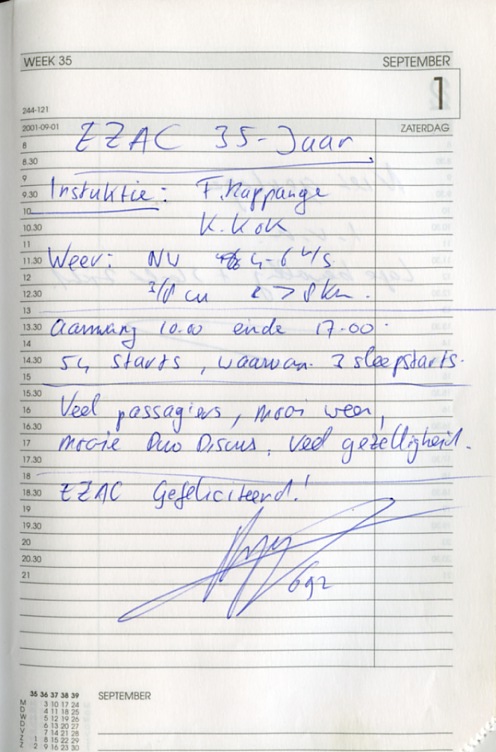 WEEK 35 SEPTEMBER
1
244-121
2001-09-01 ZATERDAG
8 EZAC 35-Jaar
8.30
9
9.30 Instuktie: F. Rappange
10
10.30 K. Kok
11
11.30 Weer: NW 4-6 m/s
12
12.30 3/8 cu > 8 km.
13
13.30 aanvang 10.00 einde 17.00.
14
14.30 54 starts, waarvan 3 sleepstarts.
15
15.30
16 Veel passagiers, mooi weer,
16.30
17 mooie Duo Discus, veel gezelligheid.
17.30
18
18.30 EZAC Gefeliciteerd!
19
19.30
20
20.30
21
35 36 37 38 39 SEPTEMBER
M 3 10 17 24
D 4 11 18 25
W 5 12 19 26
D 6 13 20 27
V 7 14 21 28
Z 1 8 15 22 29
Z 2 9 16 23 30